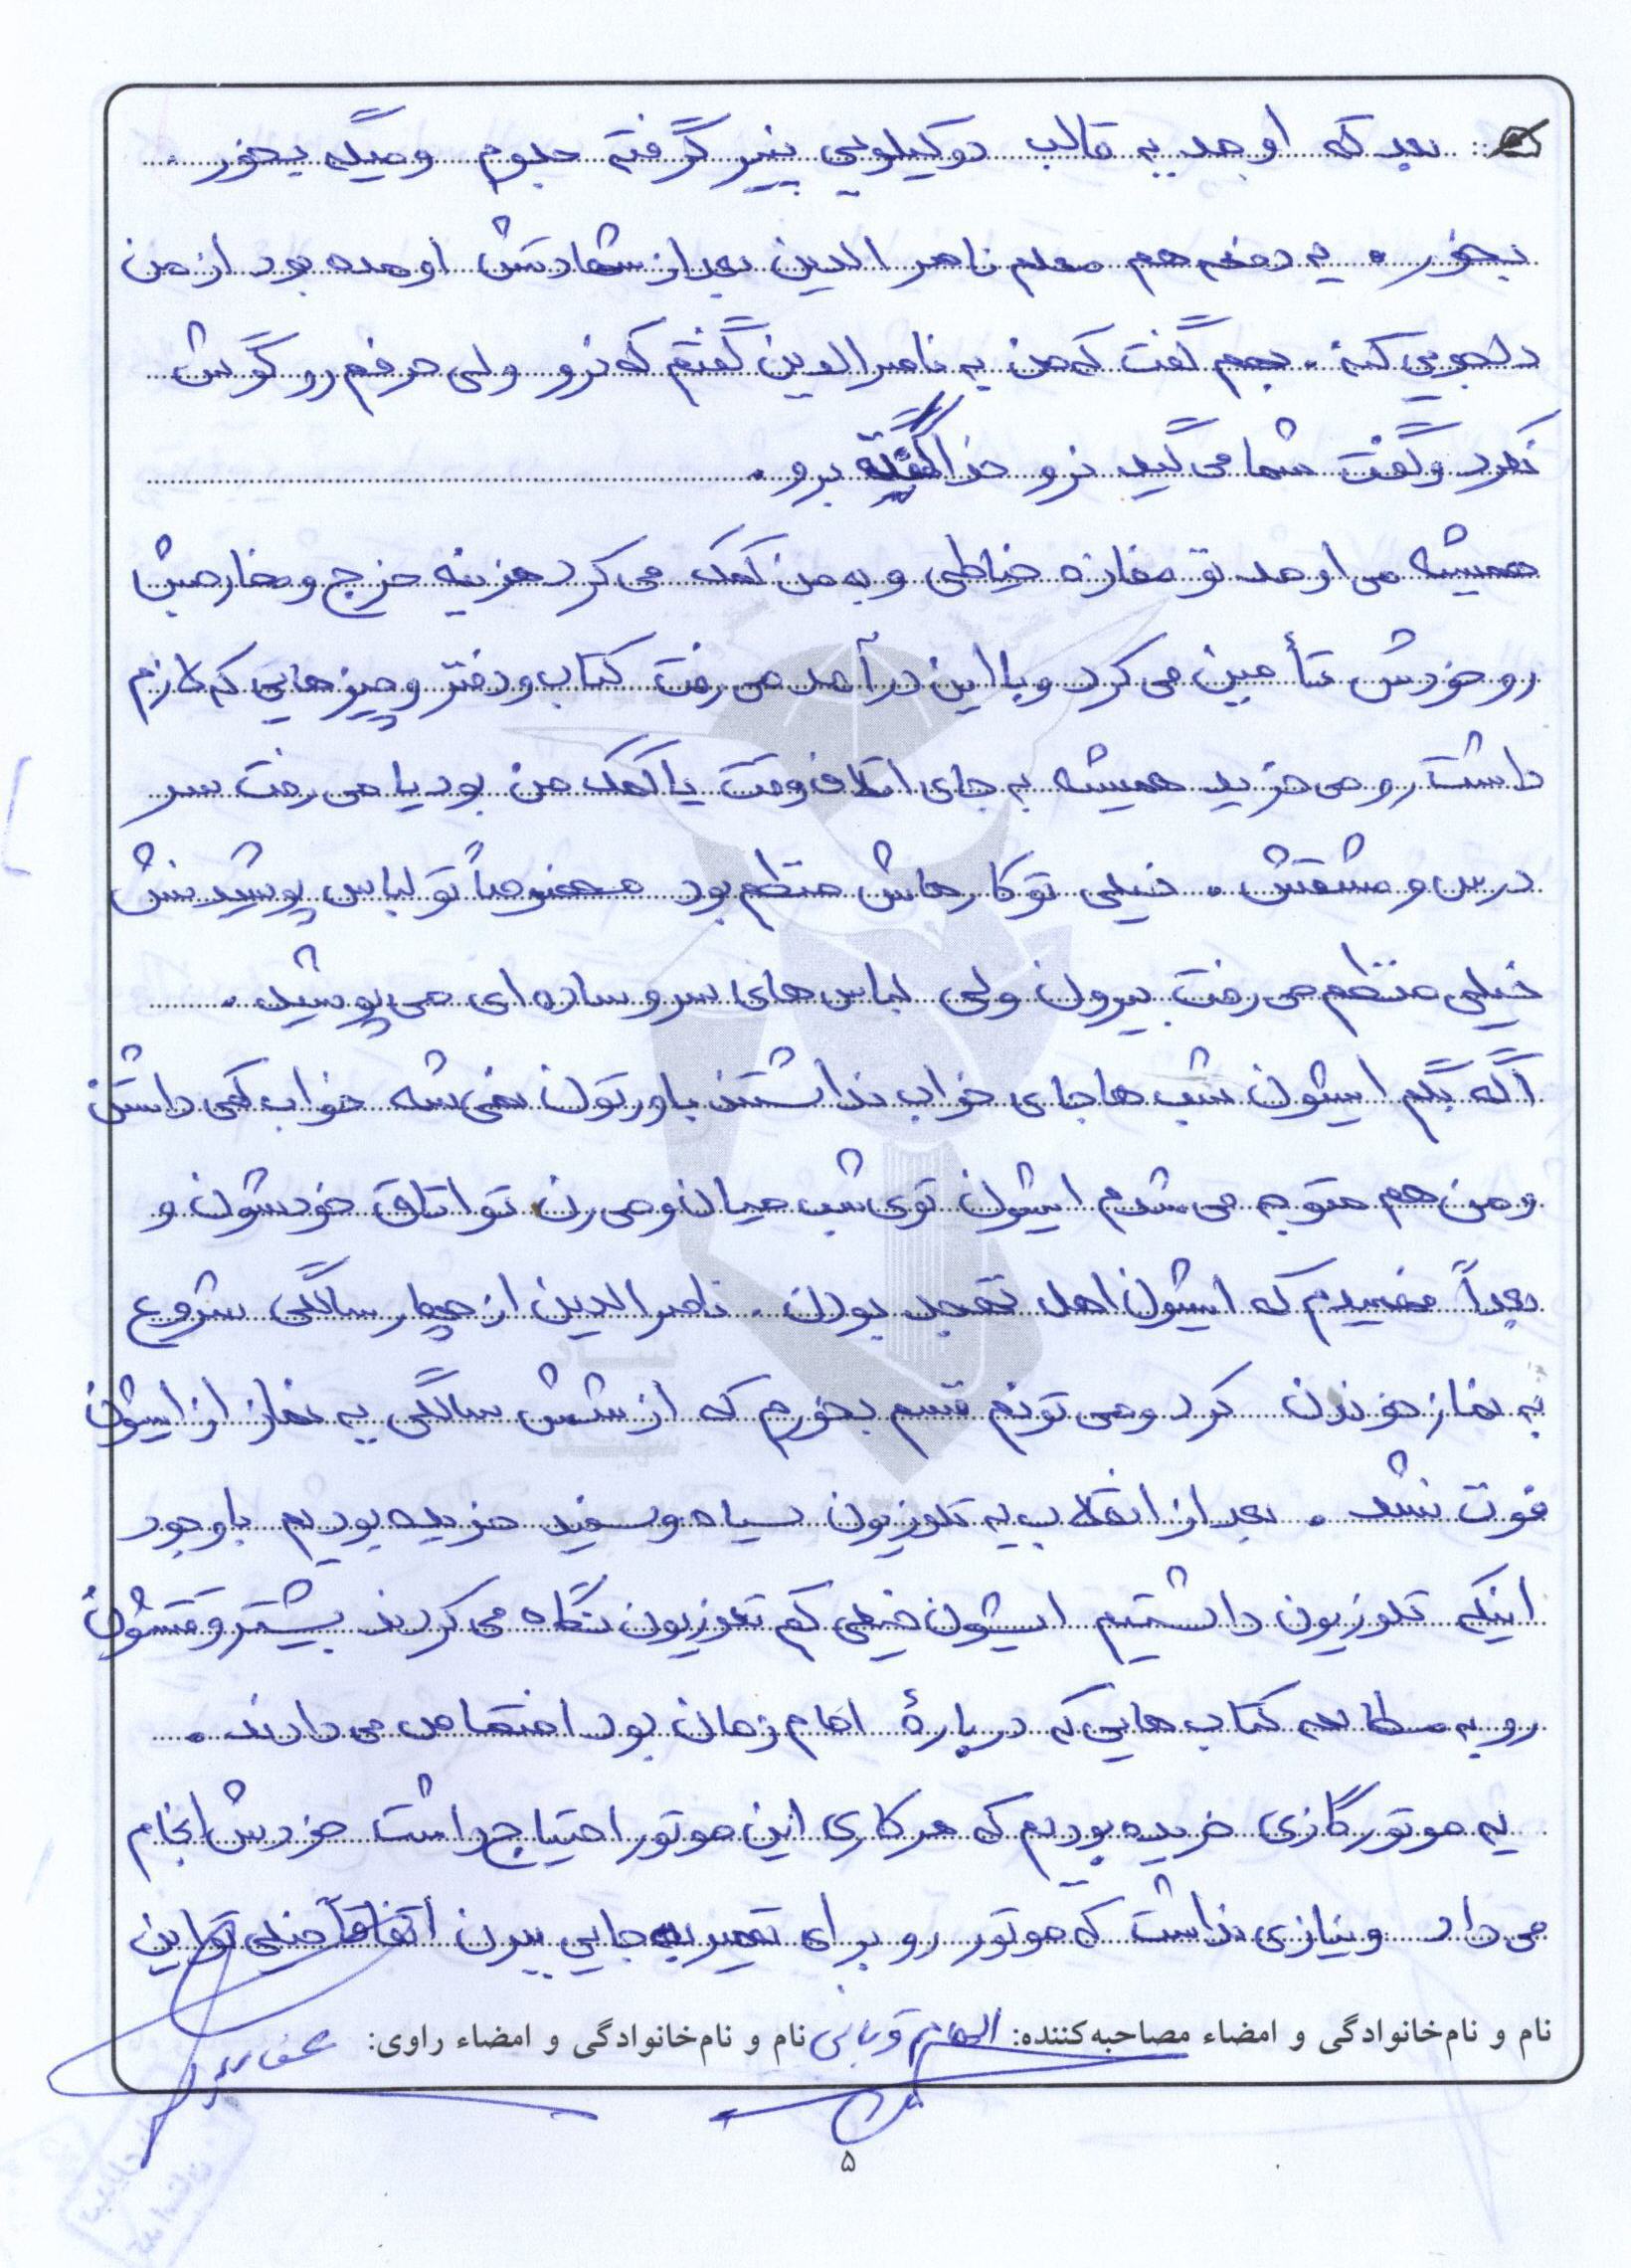 بعد که اومد یه قالب دو کیلویی پنیر گرفته جلوم و میگه بخور.
بخور. یه دفعه هم معلم ناصرالدین بعد از شهادتش اومده بود از من
دلجویی کنه. بهم گفت که من به ناصرالدین گفتم که نرو ولی حرفم رو گوش
نکرد و گفت شما می گید نرو خدا گفته برو.
همیشه می اومد تو مغازه خیاطی و به من کمک می کرد هزینه خرج و مخارجش
رو خودش تأمین می کرد و با این درآمد می رفت کتاب و دفتر و چیزهایی که لازم
داشت رو می خرید همیشه به جای اتلاف وقت یا کمک من بود یا می رفت سر
درس و مشقش. خیلی تو کارهاش منظم بود مخصوصاً تو لباس پوشیدنش
خیلی منظم می رفت بیرون ولی لباس های سر و ساده ای می پوشید.
اگه بگم ایشون شب ها جای خواب نداشتند باورتون نمی شه خواب کمی داشتن
و من هم متوجه می شدم ایشون توی شب میان و می رن تو اتاق خودشون و
بعداً فهمیدم که ایشون اهل تهجد بودن. ناصرالدین از چهار سالگی شروع
به نماز خوندن کرد و می تونم قسم بخورم که از شش سالگی یه نماز از ایشون
فوت نشد. بعد از انقلاب یه تلوزیون سیاه و سفید خریده بودیم با وجود
اینکه تلوزیون داشتیم ایشون خیلی کم تلوزیون نگاه می کردند بیشتر وقتشون
رو به مطالعه کتاب هایی که دربارهٔ امام زمان بود اختصاص می دادند.
یه موتور گازی خریده بودیم که هر کاری این موتور احتیاج داشت خودش انجام
می داد و نیازی نداشت که موتور رو برای تعمیر به جایی ببرن اتفاقاً خیلی تو این
نام و نام‌خانوادگی و امضاء مصاحبه‌کننده: الهام قربانی نام و نام‌خانوادگی و امضاء راوی:
۵